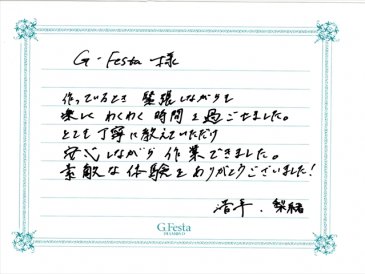 G・Festa 様
作っているとき 緊張しながらも
楽しく わくわく 時間を過ごせました。
とても丁寧に教えていただけ
安心しながら 作業できました。
素敵な体験をありがとうございました！
浩平、梨緒
G.Festa